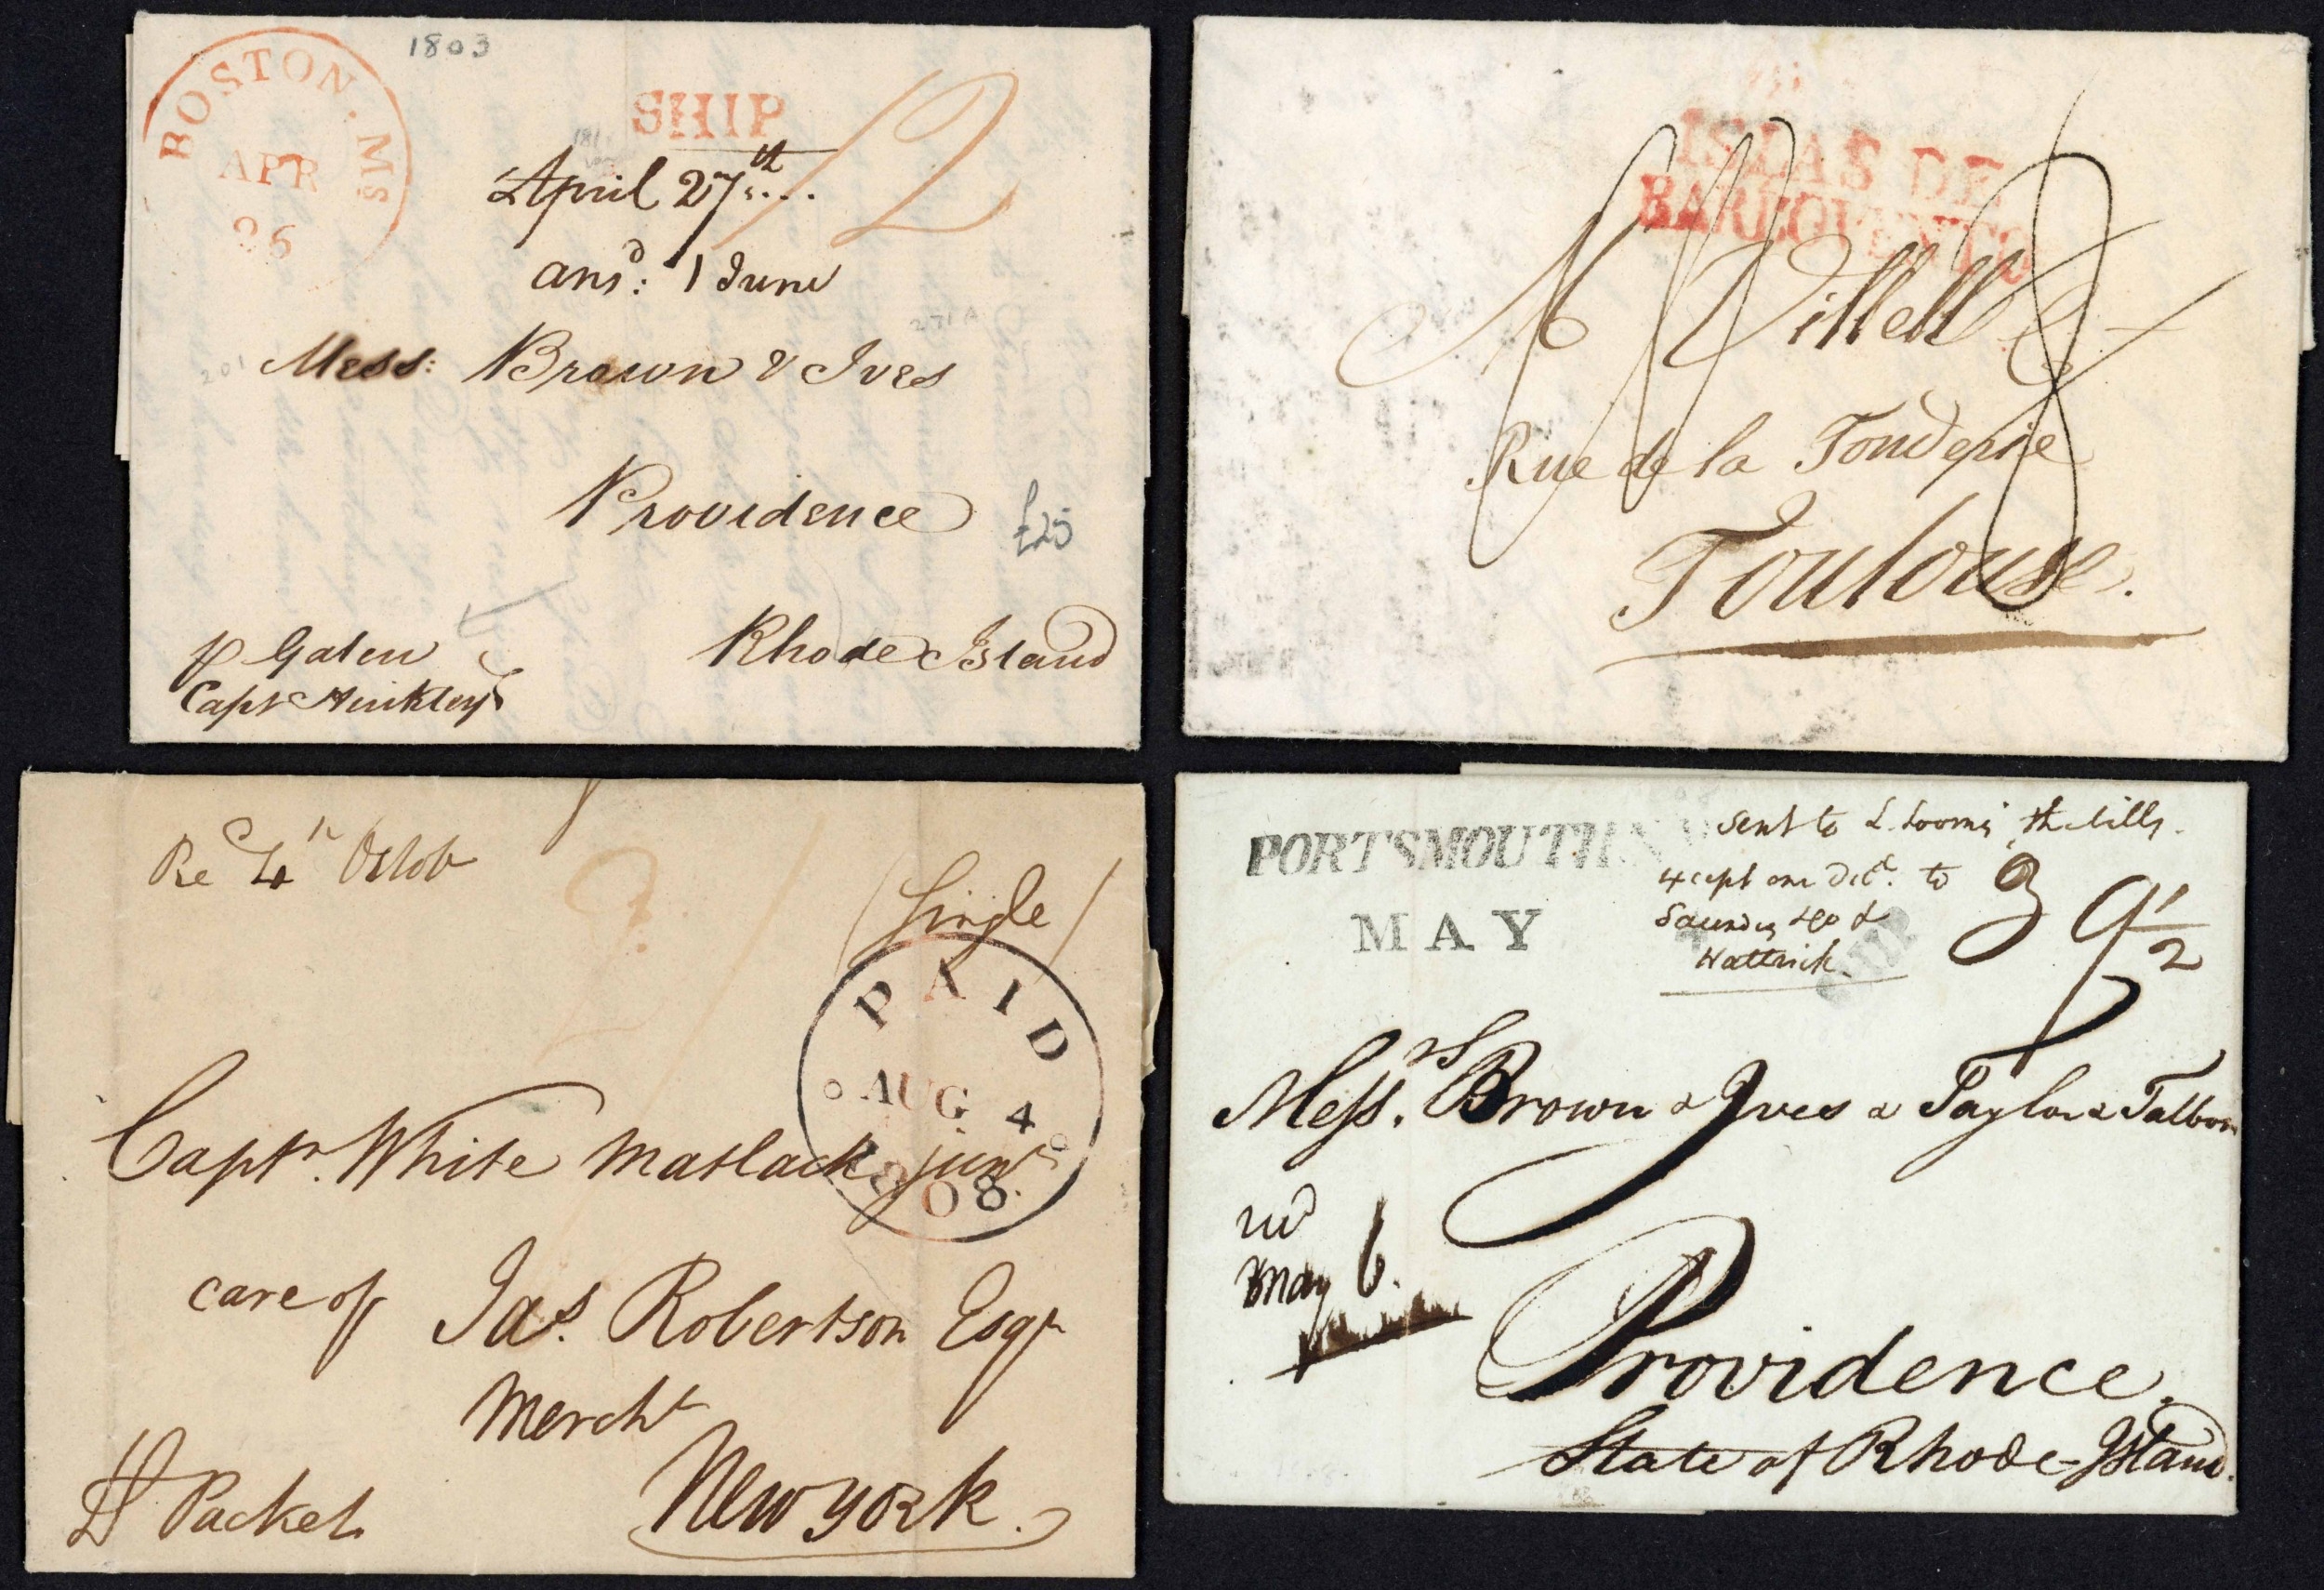 1803
BOSTON. MS
APR
26
SHIP
12
April 27th
ansd: 1 June
Mess: Brown & Ives
Providence
£25
Rhode Island
p Galen
Capt Hinkley
ISLAS DE
BARLOVENTO
Rue de la Fonderie
Toulouse.
Rec 4th Octob
(Single)
PAID
AUG 4
1808
Captn. White Matlack junr.
care of Jas. Robertson Esqr
Mercht
New york.
p Packet
PORTSMOUTH N
MAY
SHIP
sent to L. Loomis the bills
except one to
9 1/2
Messrs. Brown & Ives & Taylor & Talbot
recd
May 6.
Providence.
State of Rhode-Island.